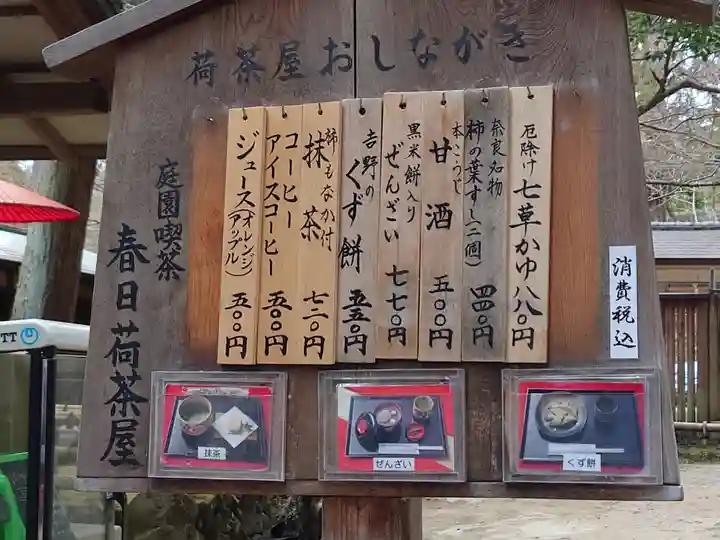 荷茶屋おしながき
厄除け七草かゆ 八〇〇円
奈良名物
柿の葉すし(二個) 四〇〇円
本こうじ
甘酒 五〇〇円
黒米餅入り
ぜんざい 七七〇円
吉野の
くず餅 五五〇円
柿もなか付
抹茶 七二〇円
コーヒー
アイスコーヒー 五〇〇円
ジュース(オレンジ/アップル) 五〇〇円
消費税込
庭園喫茶
春日荷茶屋
抹茶
ぜんざい
くず餅
TT